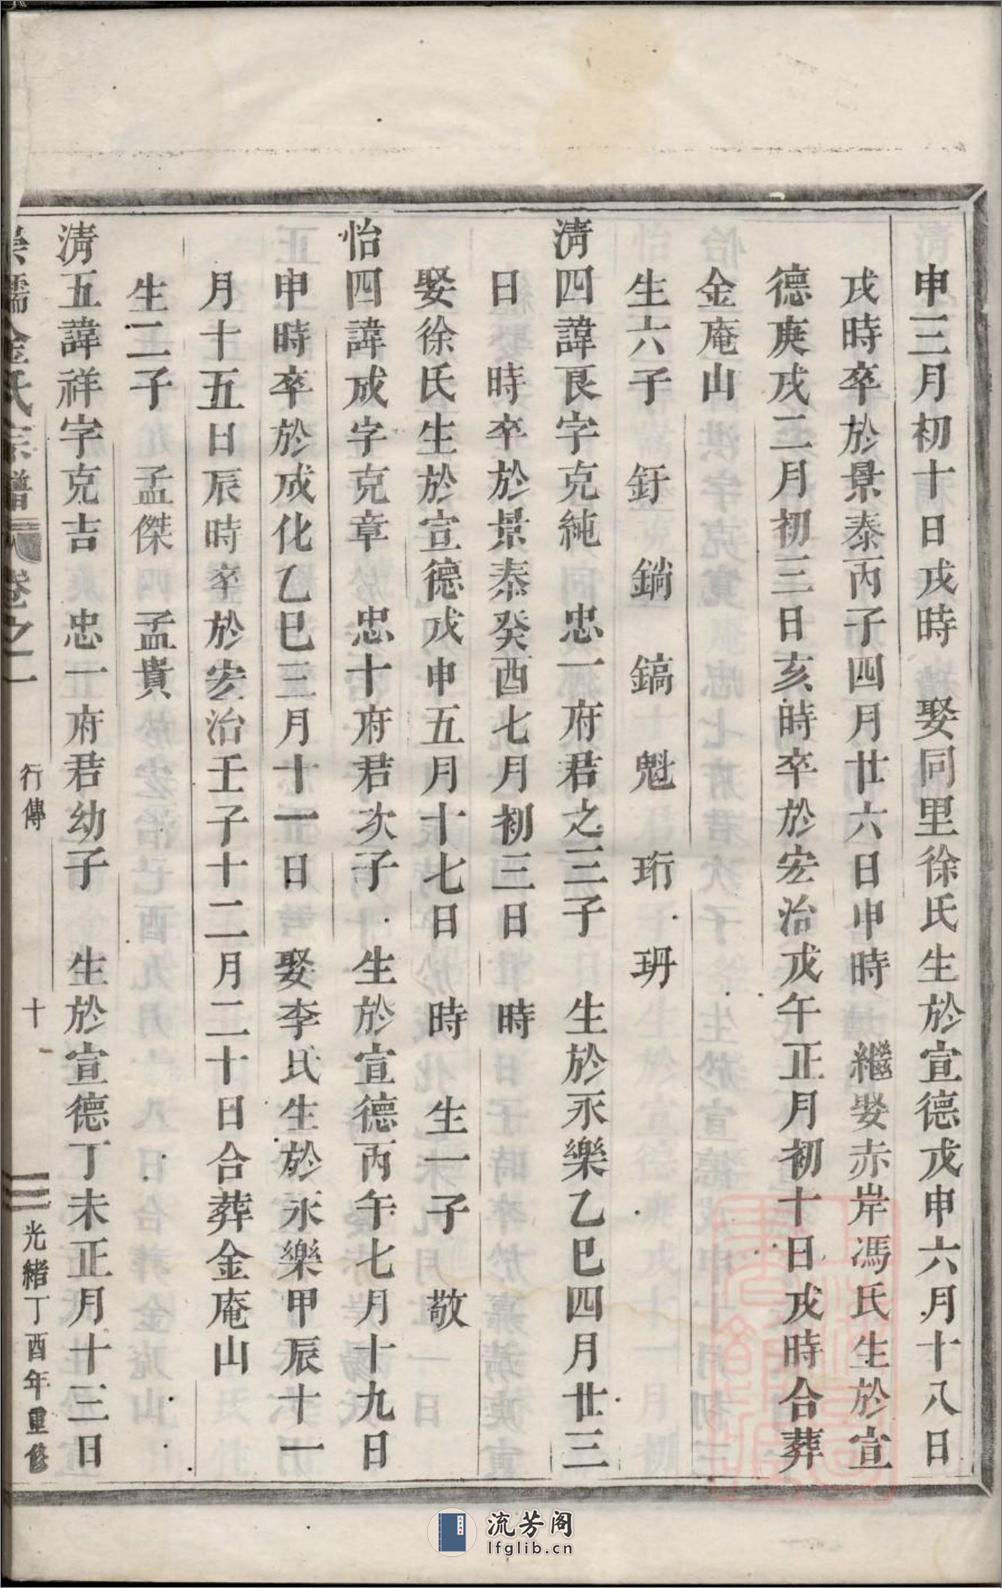 申三月初十日戌時 娶同里徐氏生於宣德戊申六月十八日
戌時卒於景泰丙子四月廿六日申時 繼娶赤岸馮氏生於宣
德庚戌二月初三日亥時卒於宏治戊午正月初十日戌時合葬
金庵山
生六子 釪 鋿 鎬 魁 珩 珃
清四諱良字克純 忠一府君之三子 生於永樂乙巳四月廿三
日 時卒於景泰癸酉七月初三日 時
娶徐氏生於宣德戊申五月十七日 時 生一子 敬
怡四諱成字克章 忠十府君次子 生於宣德丙午七月十九日
申時卒於成化乙巳三月十一日 娶李氏生於永樂甲辰十一
月十五日辰時卒於宏治壬子十二月二十日合葬金庵山
生二子 孟傑 孟貴
清五諱祥字克吉 忠一府君幼子 生於宣德丁未正月十三日
金氏宗譜 卷之一 行傳 十 光緒丁酉年重修
流芳阁
lfglib.cn